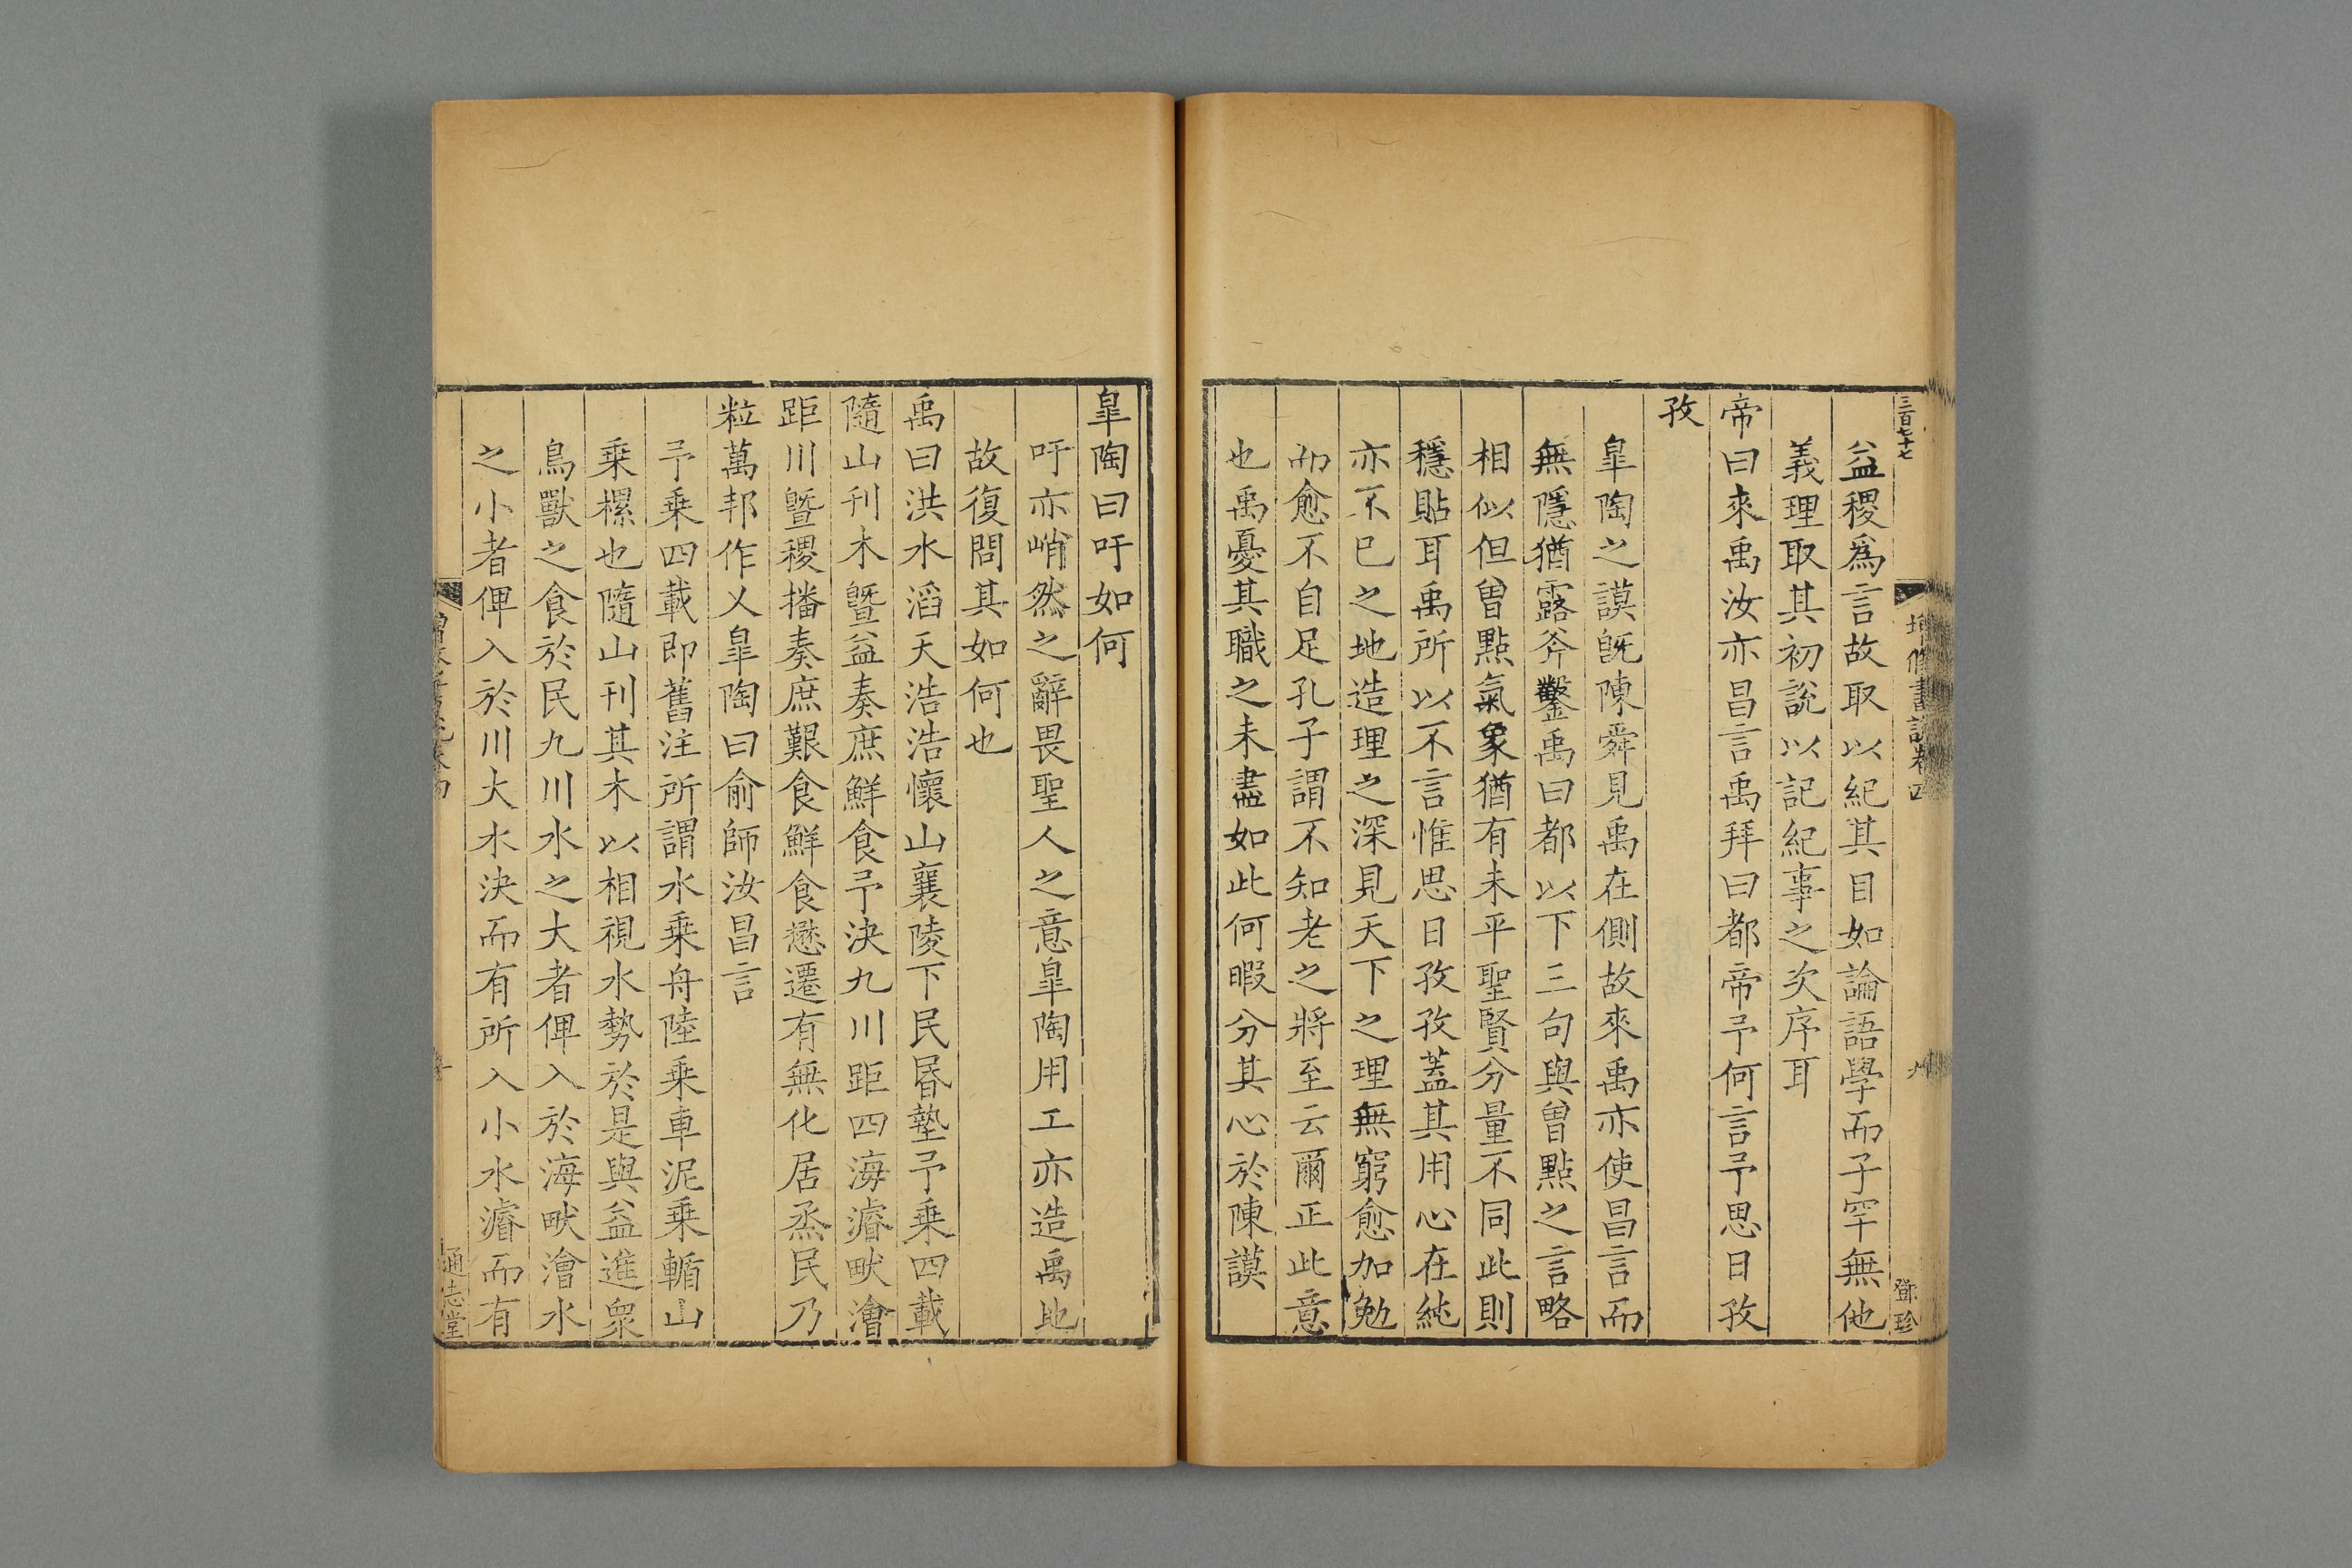 三百七十七
增修書說卷四
九
鄧珍
益稷爲言故取以紀其目如論語學而子罕無他
義理取其初說以記紀事之次序耳
帝曰來禹汝亦昌言禹拜曰都帝予何言予思日孜
孜
皐陶之謨旣陳舜見禹在側故來禹亦使昌言而
無隱猶露斧鑿禹曰都以下三句與曾點之言略
相似但曾點氣象猶有未平聖賢分量不同此則
穩貼耳禹所以不言惟思日孜孜蓋其用心在純
亦不已之地造理之深見天下之理無窮愈加勉
而愈不自足孔子謂不知老之將至云爾正此意
也禹憂其職之未盡如此何暇分其心於陳謨
皐陶曰吁如何
吁亦峭然之辭畏聖人之意皐陶用工亦造禹地
故復問其如何也
禹曰洪水滔天浩浩懷山襄陵下民昬墊予乗四載
隨山刋木曁益奏庶鮮食予決九川距四海濬畎澮
距川曁稷播奏庶艱食鮮食懋遷有無化居烝民乃
粒萬邦作乂皐陶曰俞師汝昌言
予乗四載即舊注所謂水乗舟陸乗車泥乗輴山
乗樏也隨山刋其木以相視水勢於是與益進衆
鳥獸之食於民九川水之大者俾入於海畎澮水
之小者俾入於川大水決而有所入小水濬而有
通志堂